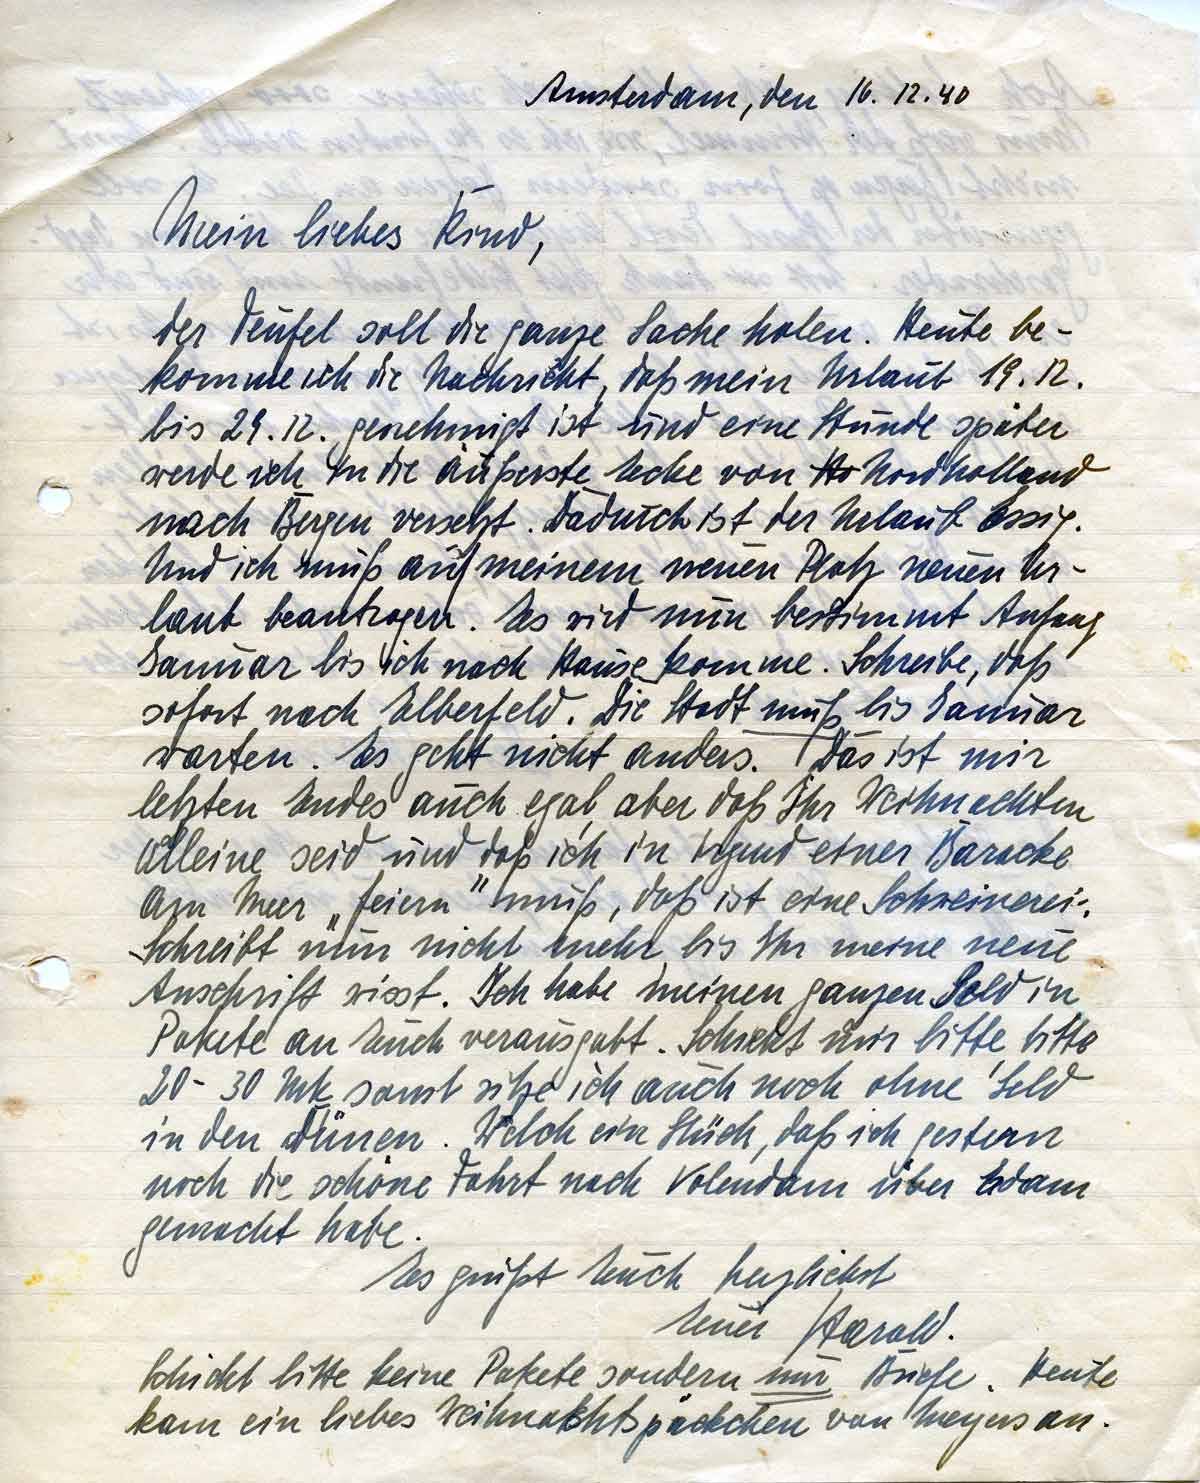 Amsterdam, den 16.12.40
Mein liebes Kind,
der Teufel soll die ganze Sache holen. Heute be-
komme ich die Nachricht, daß mein Urlaub 19.12.
bis 29.12. genehmigt ist und eine Stunde später
werde ich in die äußerste Ecke von Nordholland
nach Bergen versetzt. Dadurch ist der Urlaub Essig.
Und ich muß auf meinem neuen Platz neuen Ur-
laub beantragen. Es wird nun bestimmt Anfang
Januar bis ich nach Hause komme. Schreibe, daß
sofort nach Elberfeld. Die Stadt muß bis Januar
warten. Es geht nicht anders. Das ist mir
letzten Endes auch egal, aber daß Ihr Weihnachten
alleine seid und daß ich in irgend einer Baracke
am Meer „feiern" muß, daß ist eine Schweinerei.
Schreibt nun nicht mehr bis Ihr meine neue
Anschrift wisst. Ich habe meinen ganzen Sold in
Pakete an Euch verausgabt. Schickt mir bitte bitte
20-30 Mk sonst sitze ich auch noch ohne Geld
in den Dünen. Welch ein Glück, daß ich gestern
noch die schöne Fahrt nach Volendam über Edam
gemacht habe.
Es grüßt Euch herzlichst
Euer Harald.
Schickt bitte keine Pakete sondern nur Briefe. Heute
kam ein liebes Weihnachtspäckchen von Meyers an.